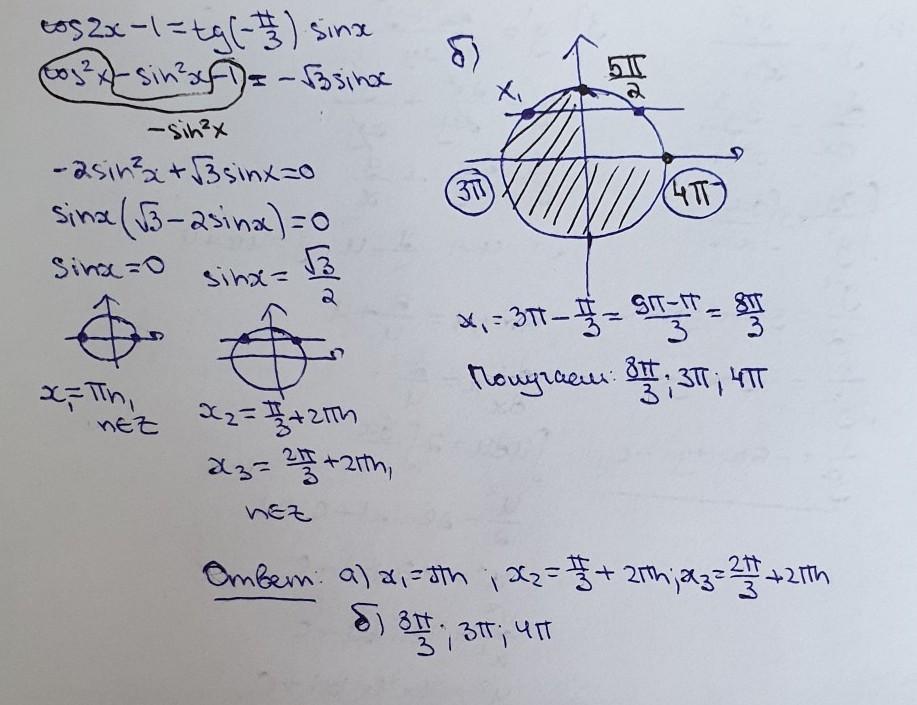 cos2x-1=tg(-π/3) sinx
cos²x-sin²x-1 = -√3sinx
-sin²x
-2sin²x+√3sinx=0
sinx(√3-2sinx)=0
sinx=0 sinx=√3/2
x₁=πn,
n∈Z
x₂=π/3+2πn
x₃=2π/3+2πn,
n∈Z
б)
5π/2
x₁
3π 4π
x₁=3π-π/3=9π-π/3=8π/3
Получаем: 8π/3; 3π; 4π
Ответ: а) x₁=πn; x₂=π/3+2πn; x₃=2π/3+2πn
б) 8π/3; 3π; 4π